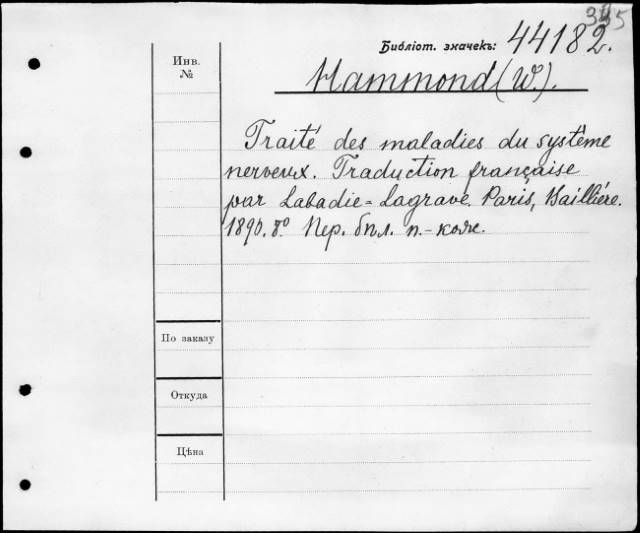 335
Библіот. значекъ: 44182.
Инв.
№
Hammond (W.).
Traité des maladies du système
nerveux. Traduction française
par Labadie=Lagrave. Paris, Baillière.
1890. 8º Пер. бпл. п.-кож.
По заказу
Откуда
Цѣна